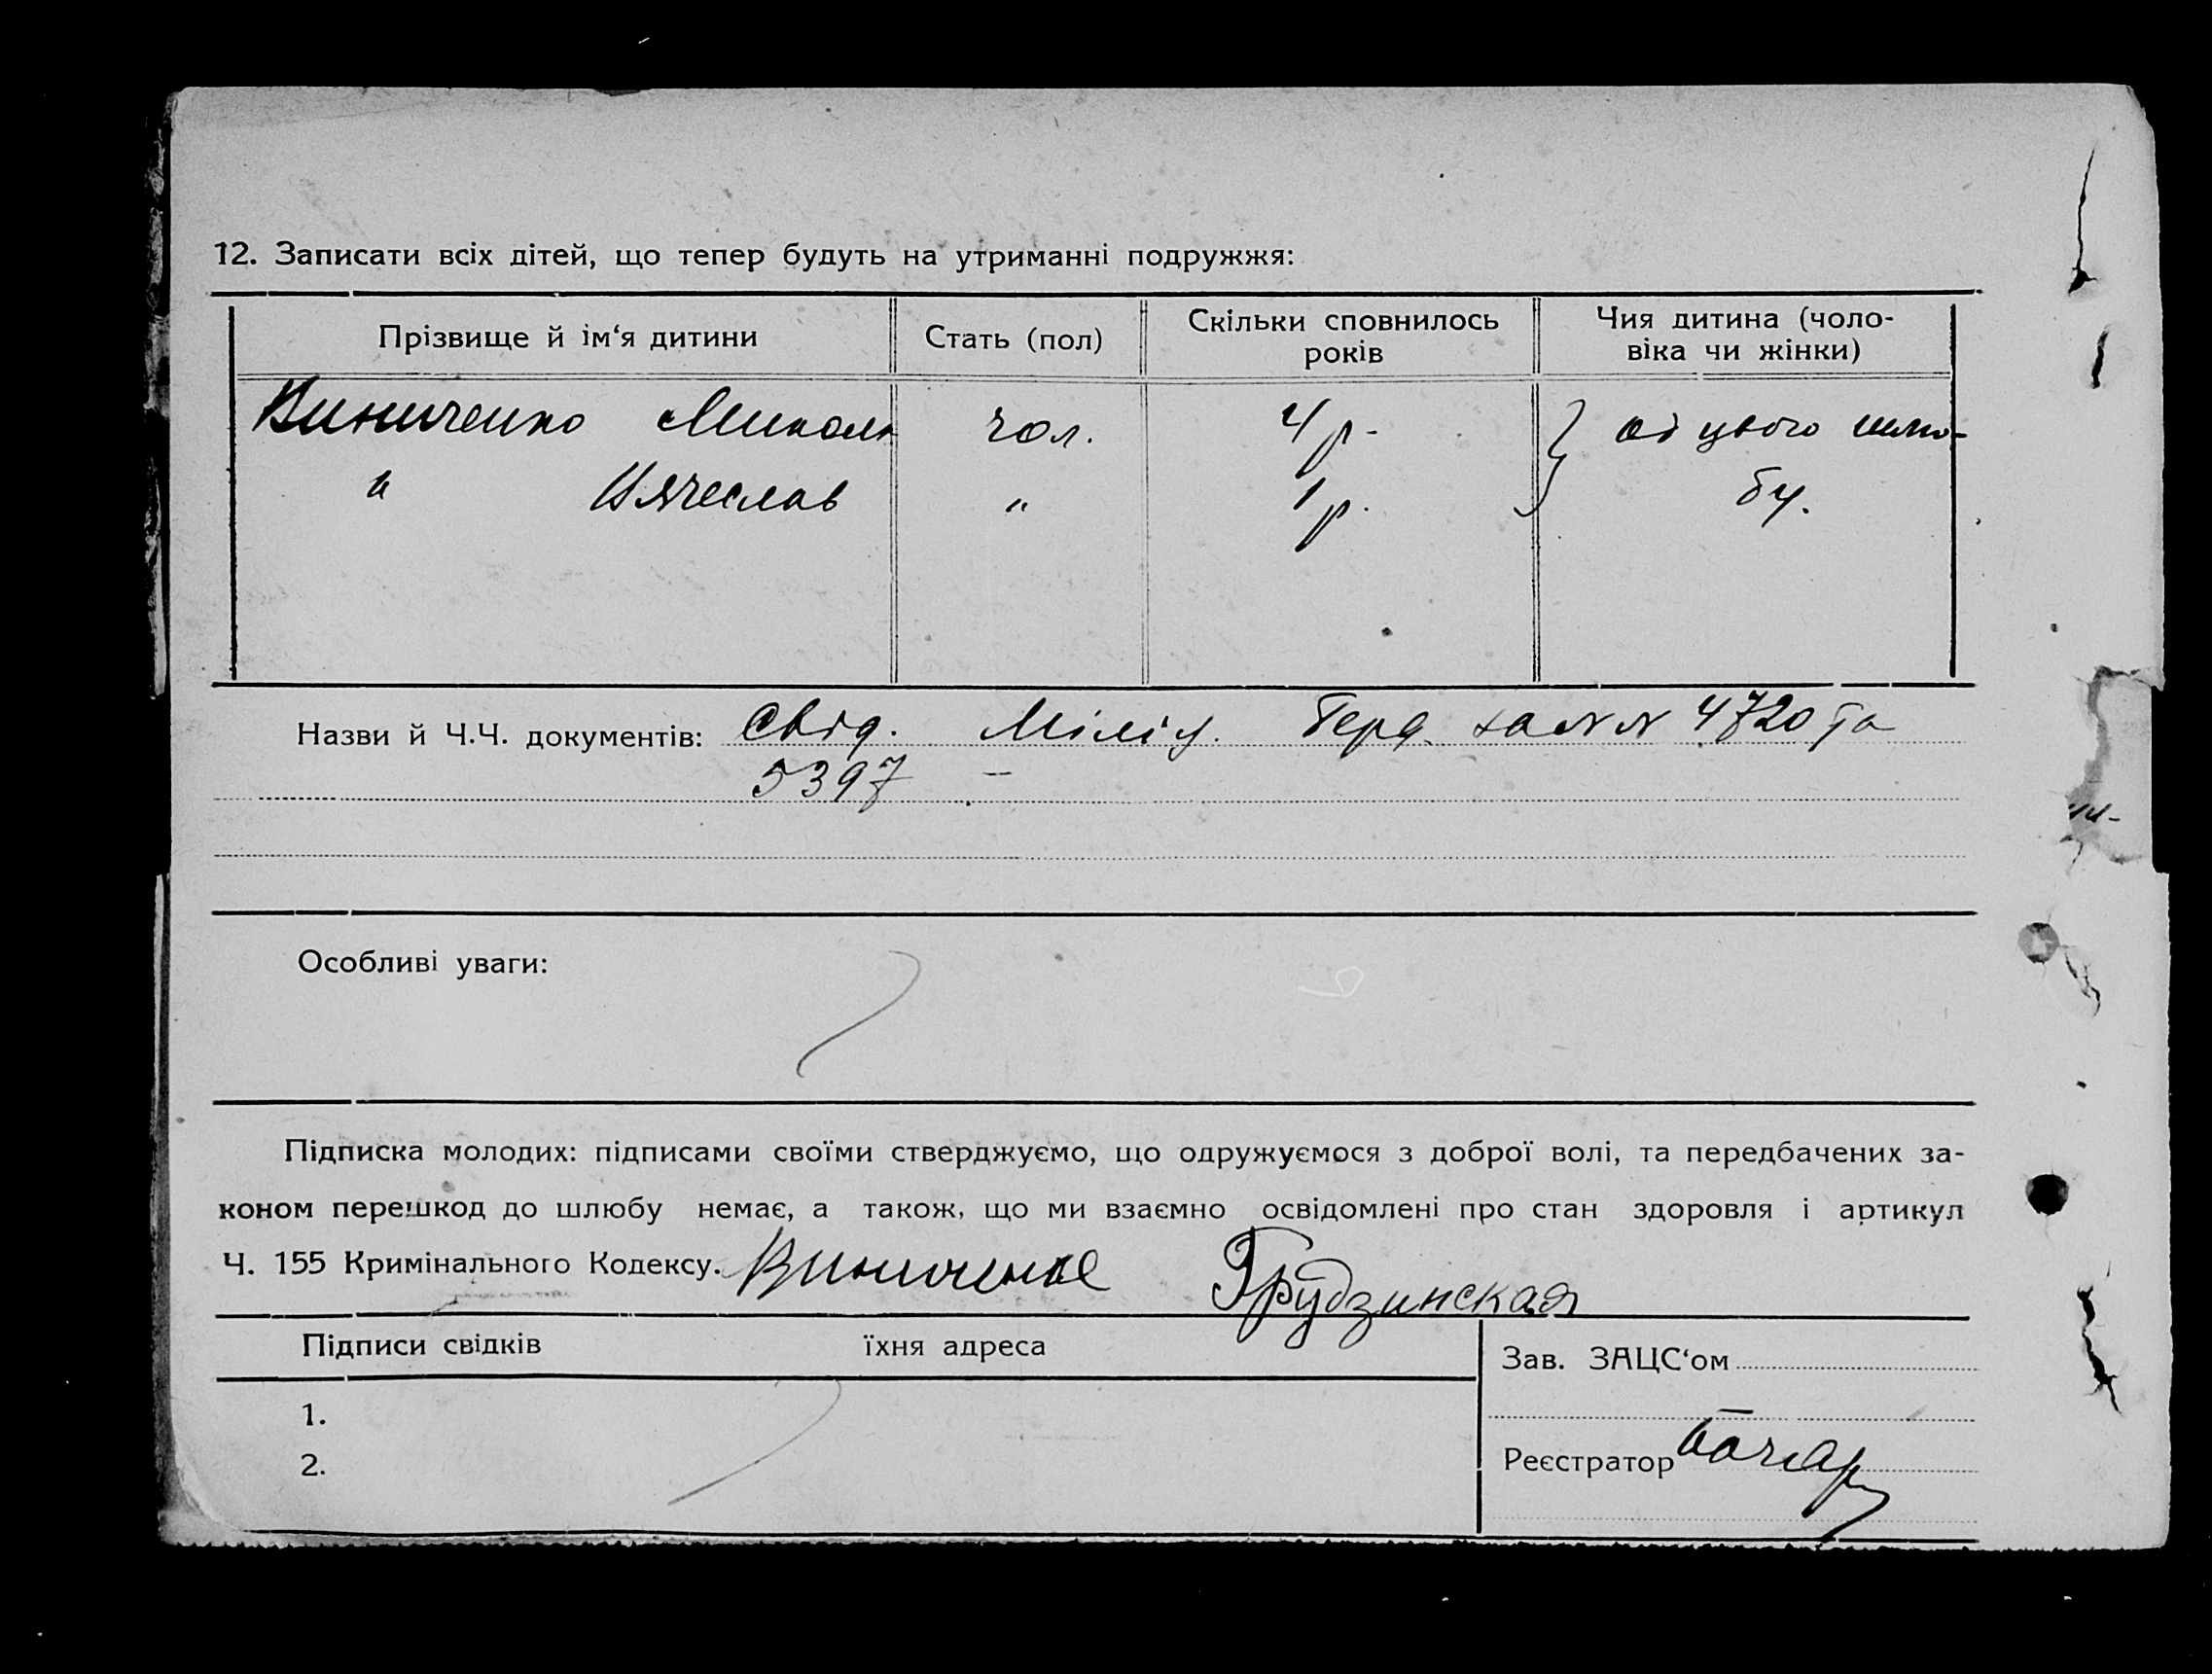 12. Записати всіх дітей, що тепер будуть на утриманні подружжя:
Прізвище й ім‘я дитини Стать (пол) Скільки сповнилось років Чия дитина (чоловіка чи жінки)
Виниченко Микола чол. 4 р. } од цього шлю-
" Вячеслав " 1 р. бу.
Назви й Ч.Ч. документів: Свід. Міліц. Берд. за № № 4720 та
5397 –
Особливі уваги:
Підписка молодих: підписами своїми стверджуємо, що одружуємося з доброї волі, та передбачених за-
коном перешкод до шлюбу немає, а також, що ми взаємно освідомлені про стан здоровля і артикул
Ч. 155 Кримінального Кодексу. Виниченко Грудзинская
Підписи свідків їхня адреса
Зав. ЗАЦС‘ом
1.
2.
Реєстратор